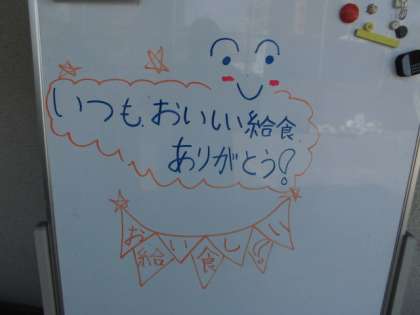 いつも、おいしい給食、
ありがとう!
おいしい
給食